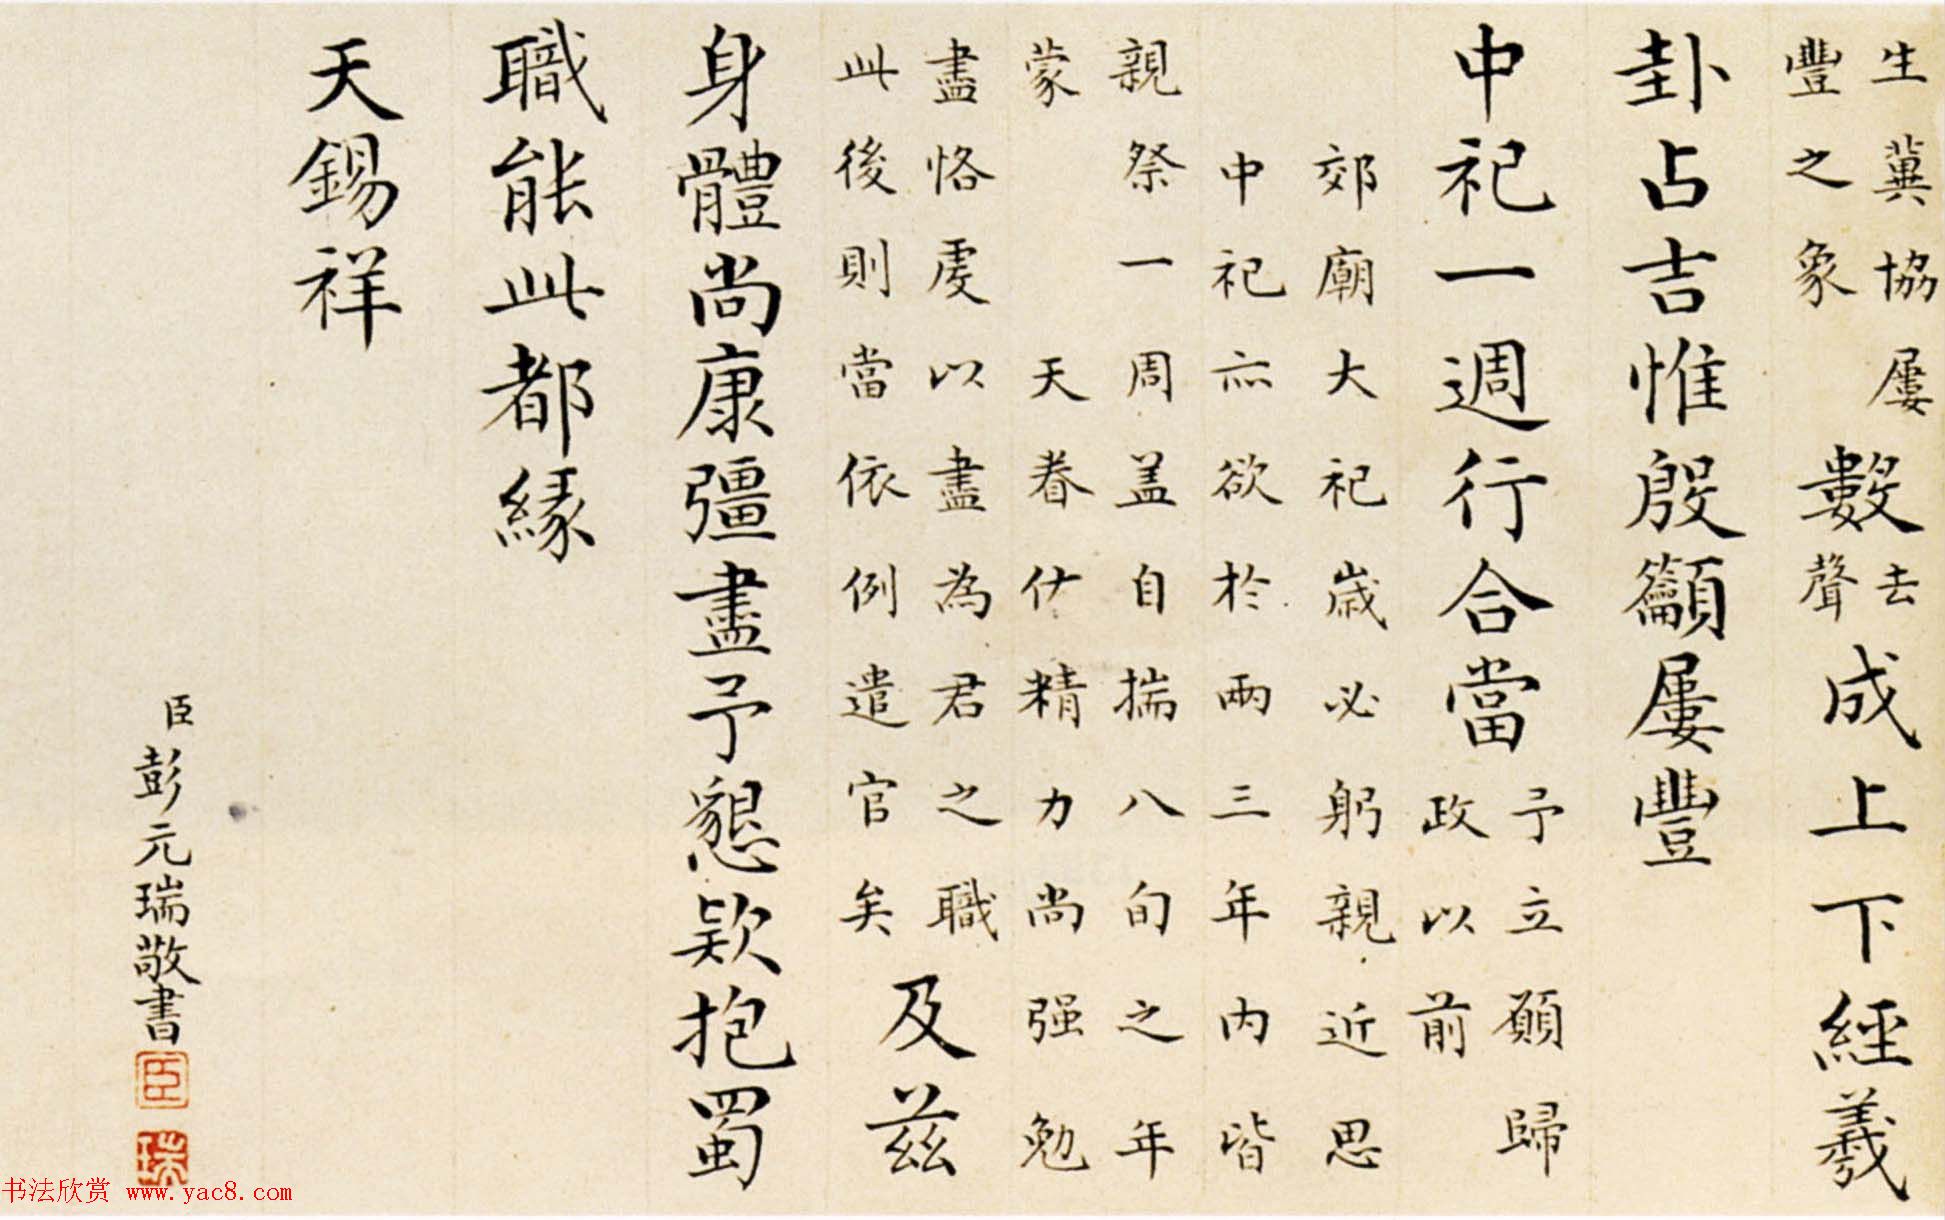 生蓂協屢
豐之象
數
去
聲
成上下經羲
卦占吉惟殷籲屢豐
中祀一週行合當
予立願歸
政以前
郊廟大祀歲必躬親近思
中祀亦欲於兩三年內皆
親祭一周盖自揣八旬之年
蒙天眷什精力尚强勉
盡恪虔以盡為君之職
此後則當依例遣官矣
及兹
身體尚康彊盡予懇欵抱蜀
職能此都緣
天錫祥
臣彭元瑞敬書
臣
瑞
书法欣赏 www.yac8.com